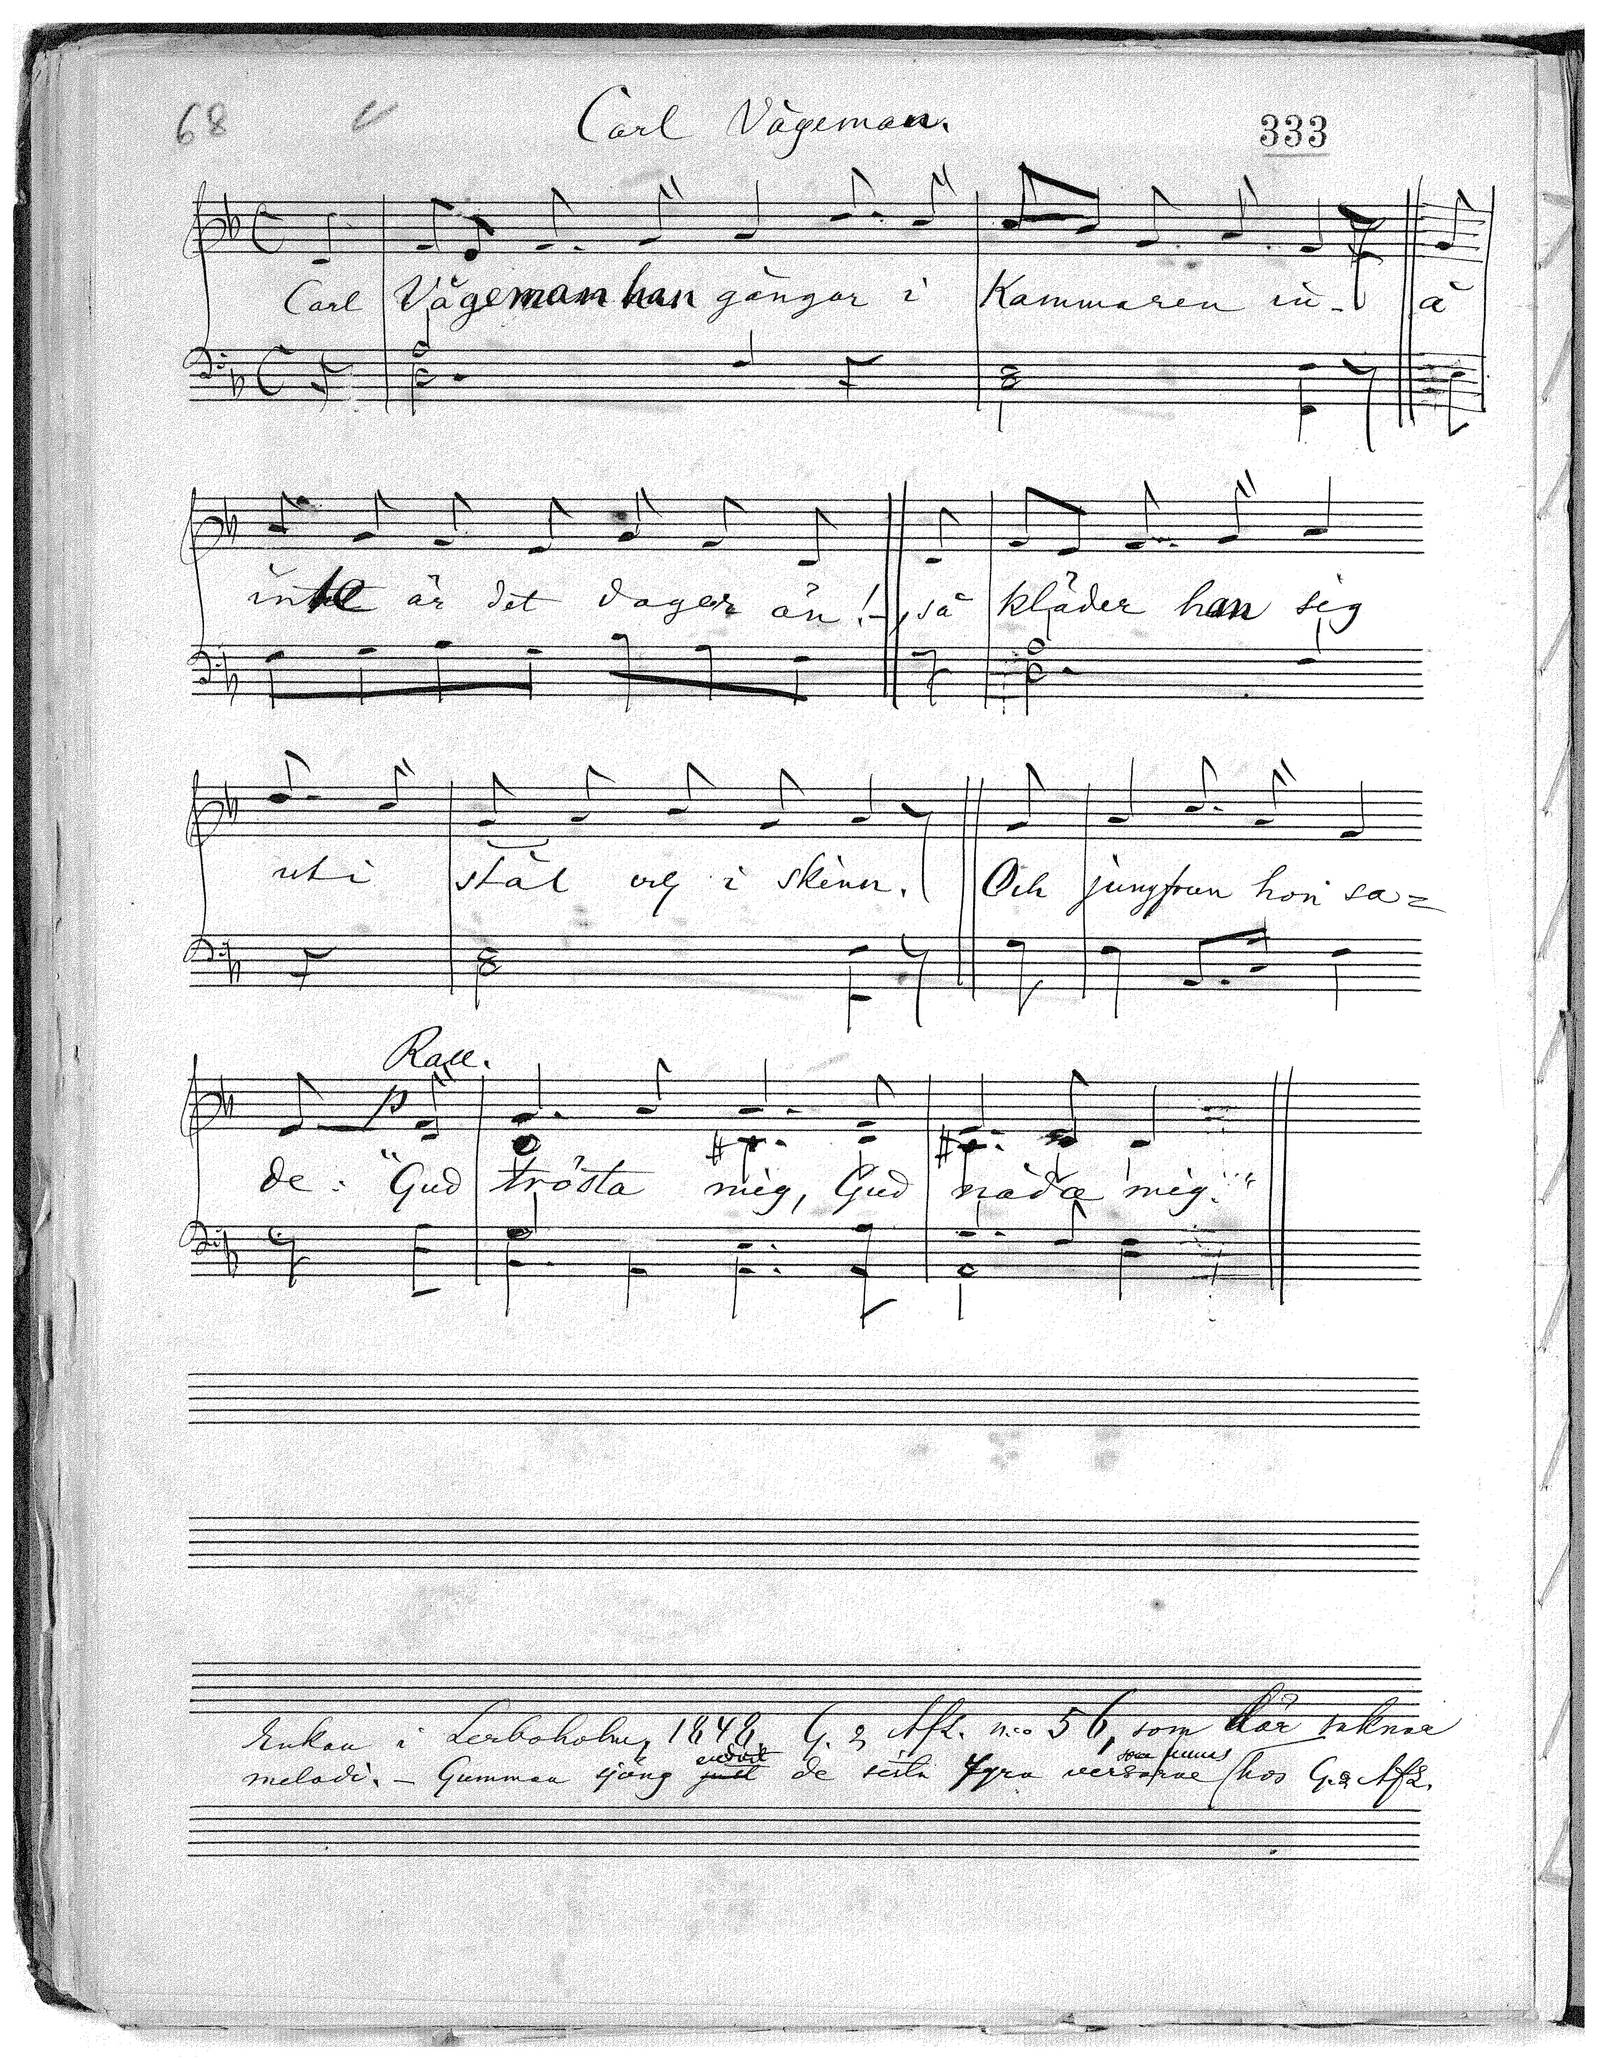 68
Carl Vägeman.
333
Carl Vägeman han gångar i Kammaren in - å
inte är det dager än! - så kläder han sig
uti stål och i skinn. Och jungfrun hon sa=
Rall.
p
de: "Gud trösta mig, Gud nåda mig."
Enkan i Lerboholm, 1848. G. & Afz. n:o 56, som där saknar
melodi. - Gumman sjöng endast de sista fyra verserne som finnas hos G. & Afz.